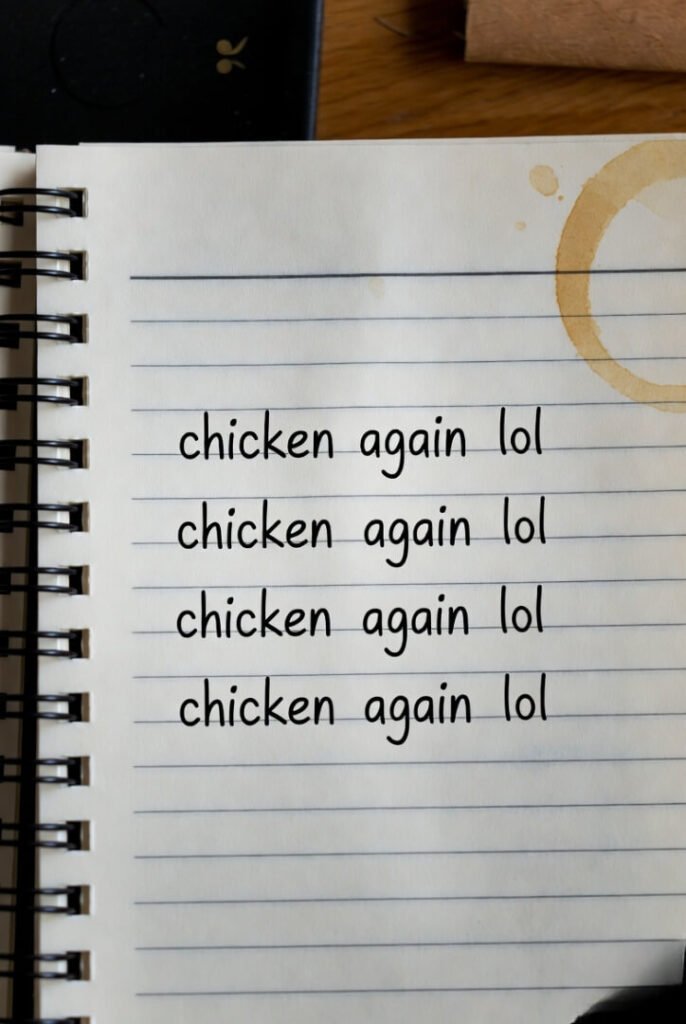 chicken again lol
chicken again lol
chicken again lol
chicken again lol